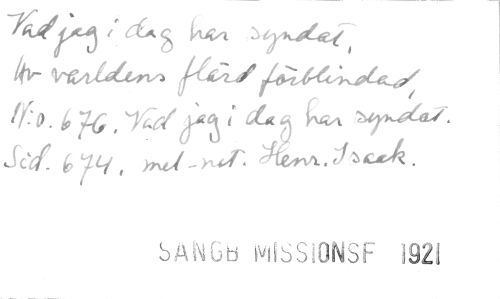 Vad jag i dag har syndat,
Av världens flärd förblindad,
N:o. 676. Vad jag i dag har syndat.
Sid. 674. mel-not. Henr. Isaak.
SANGB MISSIONSF 1921